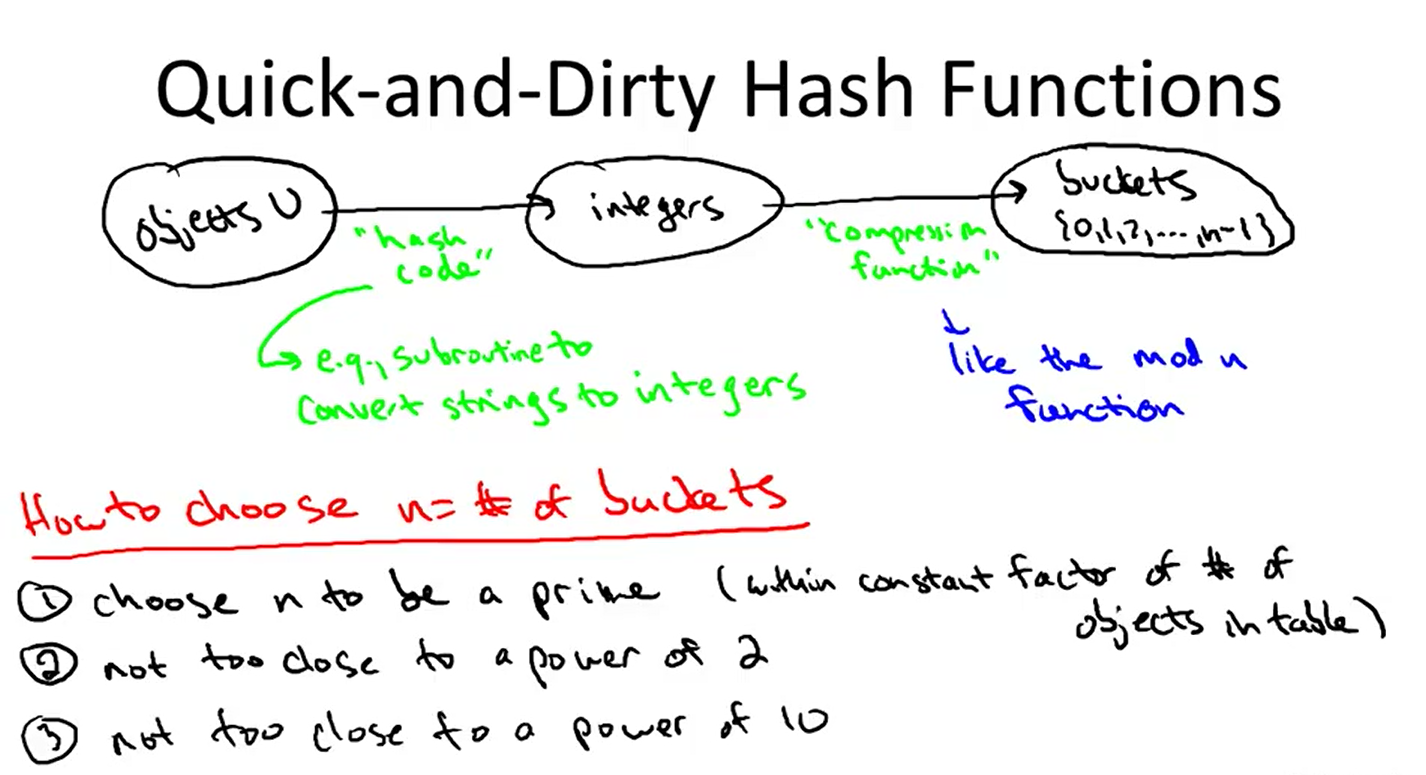 Quick-and-Dirty Hash Functions
objects U
"hash
code"
integers
"compression
function"
buckets
{0,1,2,...,n-1}
e.g., subroutine to
convert strings to integers
like the mod n
function
How to choose n = # of buckets
① choose n to be a prime (within constant factor of # of
objects in table)
② not too close to a power of 2
③ not too close to a power of 10